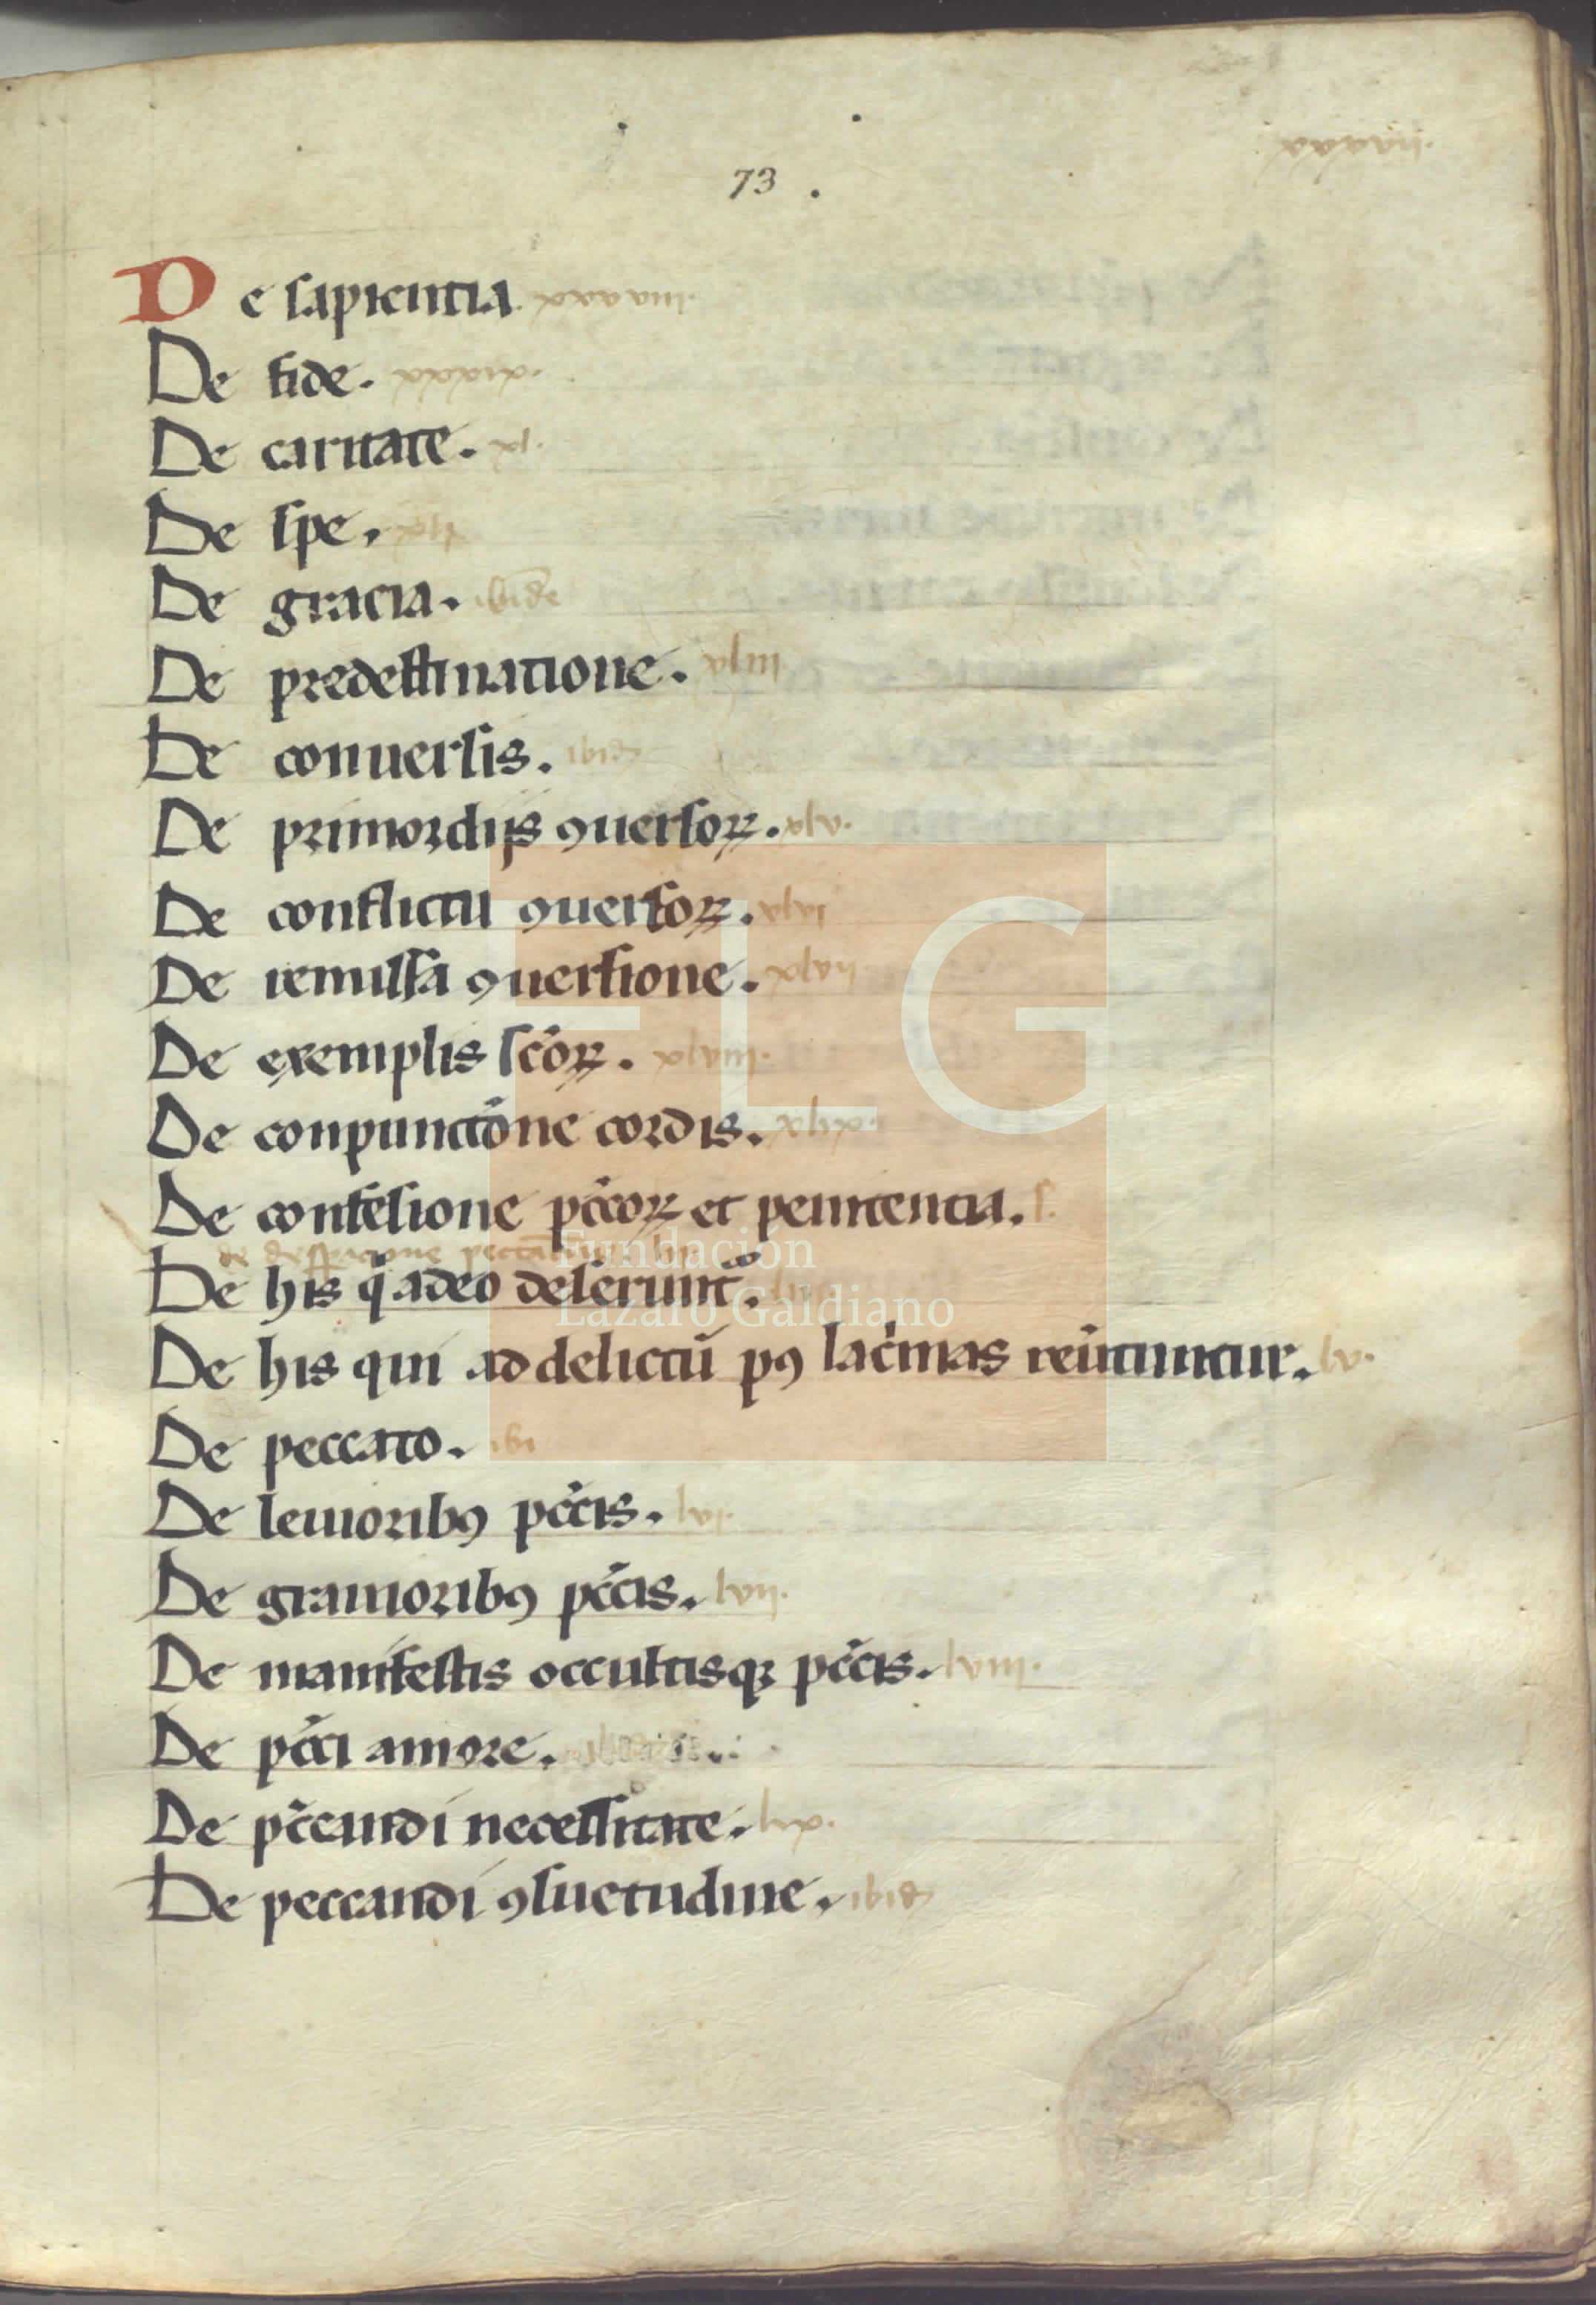 ·xxxvii
73 .
De sapientia xxxviii.
De fide. xxxix.
De caritate. xl.
De spe. xlii
De gracia. ibidē
De predestinatione. xliii
De conuersis. ibid
De primordijs ꝯuersoꝝ. xlv.
De conflictu ꝯuersoꝝ. xlvi
De remissa ꝯuersione. xlvii
De exemplis sc̄oꝝ. xlviii.
De conpunctōne cordis. xlix.
De confesione pc̄coꝝ et penitentia. l.
de desperacione peccantium
De his q̄ adeo deserunt᷑.
De his qui ad delictū pꝯ lac̄mas reūtuntur. lv.
De peccato. ibi
De leuioribꝯ pc̄cis. lvi.
De grauioribꝯ pc̄cis. lvii.
De manifestis occultisqꝫ pc̄cis. lviii.
De pc̄ci amore.
De pc̄candi necessitate. lix.
De peccandi ꝯsuetudine. ibid
FLG
Fundación
Lázaro Galdiano